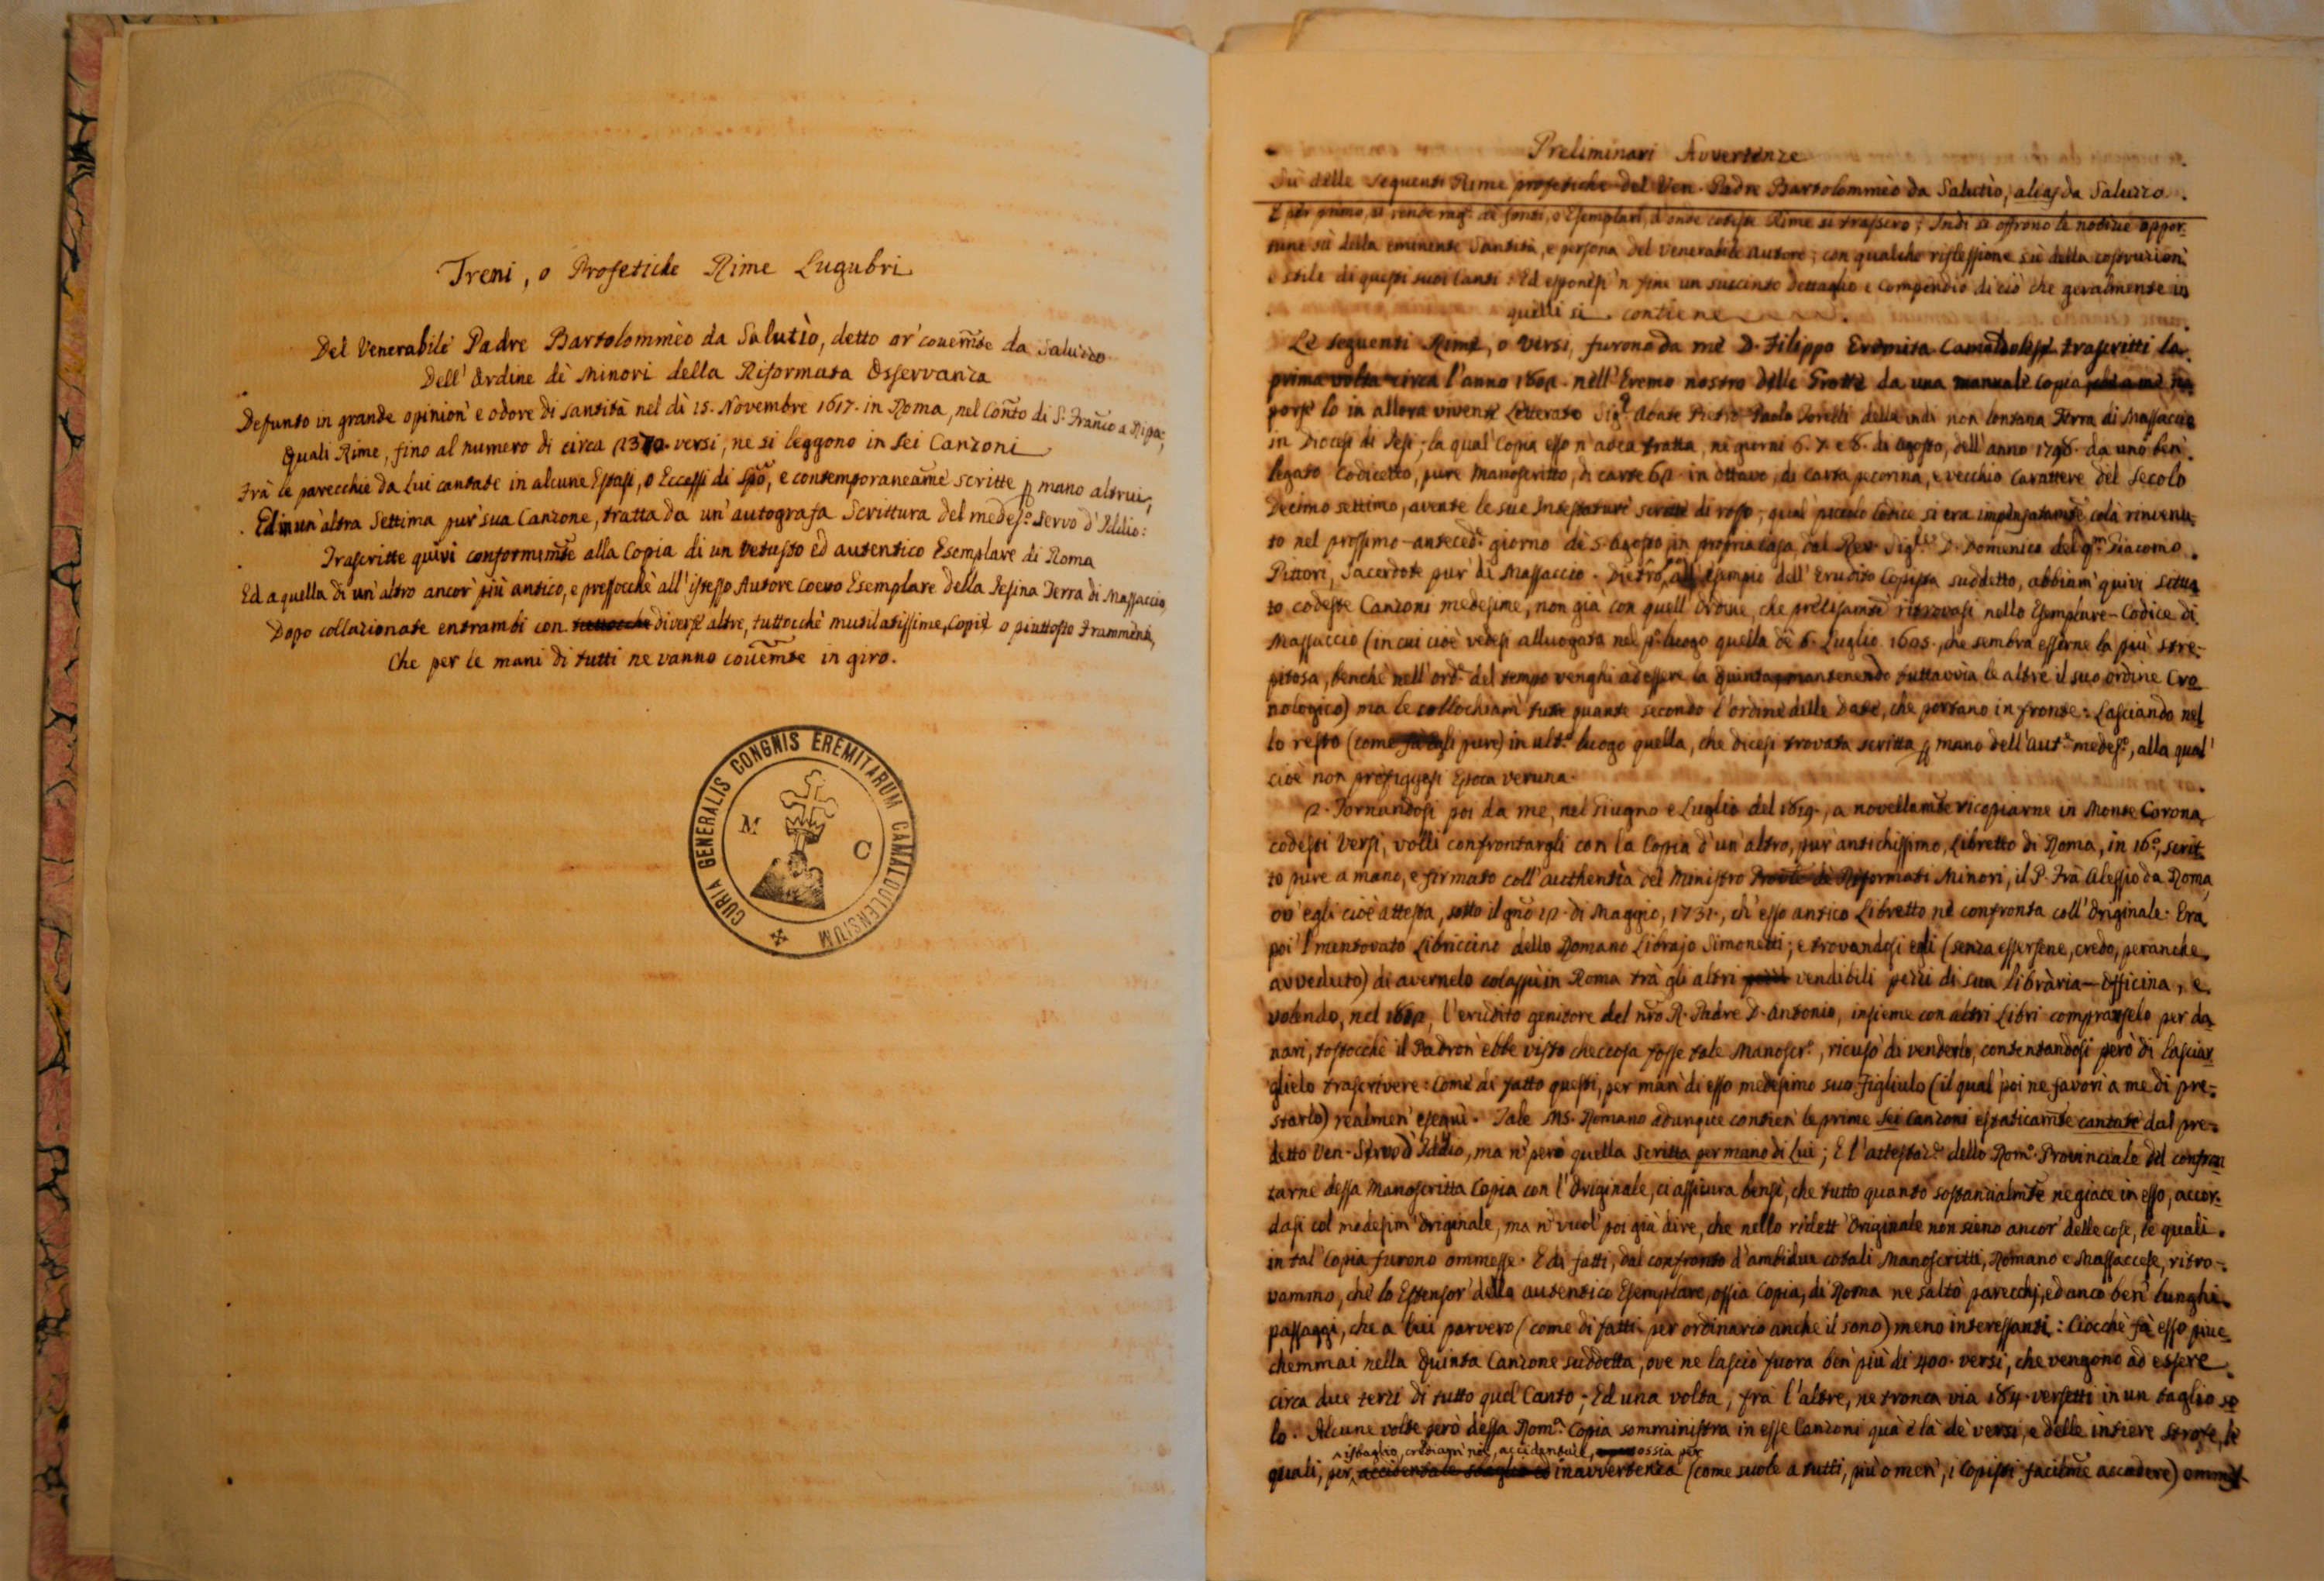 Treni, o Profetiche Rime Lugubri
Del Venerabile Padre Bartolommèo da Salutìo, detto or' covem̃te da Saluzzo
Dell' Ordine de' Minori della Riformata Osservanza
Defunto in grande opinion' e odore di santità nel dì 15. Novembre 1617. in Roma, nel Con̄to di S. Fran̄co a Ripa;
Quali Rime, fino al numero di circa versi, ne si leggono in sei Canzoni
Trà le parecchie da Lui cantate in alcune Estasi, o Eccessi di Sp̄o, e contemporaneam̄e scritte p mano altrui;
Ed in un' altra Settima pur' sua Canzone, tratta da un' autografa Scrittura del medes.º Servo d' Iddio:
Trascritte quivi conformem̃te alla Copia di un vetusto ed autentico Esemplare di Roma
Ed a quella di un' altro ancor' più antico, e pressocchè all' istesso Autore coevo Esemplare della Jesina Terra di Massaccio,
Dopo collazionate entrambi con diverse altre, tuttocchè mutilatissime, Copie o piuttosto frammenti,
Che per le mani di tutti ne vanno covem̃te in giro.
CURIA GENERALIS CONGNIS EREMITARUM CAMALDULENSIUM
M C
Preliminari Avvertenze
Su delle sequenti Rime profetiche del Ven. Padre Bartolommèo da Salutìo, alias da Saluzzo.
E per primo, si rende rag.e de' fonti, o Esemplari, d'onde coteste Rime si trassero; Indi si offrono le notizie oppor-
tune sù della eminente Santità, e persona del Venerabile Autore; con qualche riflessione sù della costruzion'
e stile di questi suoi Canti: Ed esponesi 'n fine un succinto dettaglio e Compendio di ciò che geralmente in
quelli si contiene
Le seguenti Rime, o Versi, furono da me D. Filippo Eremita Camaldolese trascritti la
prima volta circa l'anno nell' Eremo nostro delle Grotte da una manuale Copia
porse lo in allora vivente Letterato Sig.r Abate Pietro Paolo Torelli della indi non lontana Terra di Massaccio
in Diocesi di Jesi; la qual' Copia esso n' avea tratta, ne' giorni 6. 7. e 8. di Agosto, dell' anno 1798. da uno ben'
legato Codicetto, pure Manoscritto, di carte in ottavo, di carta pecorina, e vecchio Carattere del Secolo
Decimo settimo, avente le sue Intestature scritte di rosso; qual' piccolo Codice si era impensatam̃te colà rinvenu-
to nel prossimo-anteced.e giorno de' 5. Agosto, in propria casa, dal Rev. Sig. D. Domenico del qm̃ Giacomo
Pittori, Sacerdote pur' di Massaccio. Dietro esempio dell' Erudito Copista suddetto, abbiam' quivi situa
to codeste Canzoni medesime, non già con quell' Ordine, che precisam̃te ritrovasi nello Esemplare-Codice di
Massaccio (in cui cioè vedesi alluogata nel p.º luogo quella de' 6. Luglio 1605., che sembra esserne la più stre-
pitosa, benchè nell' ord.e del tempo venghi ad essere la quinta, mantenendo tuttavvia le altre il suo ordine Cro
nologico) ma le collochiam' tutte quante secondo l'ordine delle Date, che portano in fronte: Lasciando nel
lo resto (come pure) in ult.º luogo quella, che dicesi trovata scritta p mano dell' Aut.e medes.º, alla qual'
cioè non prefiggesi Epoca veruna.
2. Tornandosi poi da me, nel Giugno e Luglio del 1819., a novellam̃te ricopiarne in Monte Corona
codesti Versi, volli confrontargli con la Copia d' un' altro, pur' antichissimo, Libretto di Roma, in 16.º, scrit
to pure a mano, e firmato coll' authentìa del Ministro Prov̄le de' Riformati Minori, il P. Frà Alessio da Roma,
ov' egli cioè attesta, sotto il gno 12. di Maggio, 1731., ch' esso antico Libretto ne confronta coll' Originale: Era
poi 'l mentovato Libriccino dello Romano Librajo Simonetti; e trovandosi egli (senza essersene, credo, peranche
avveduto) di avernelo colassù in Roma trà gli altri vendibili pezzi di sua Librària-Officina, e
volendo, nel l'erudito genitore del nrō R. Padre D. Antonio, insieme con altri Libri comprarselo per da
nari, tostocchè il Padron' ebbe visto checcosa fosse tale Manoscr.º, ricusò di venderlo, contentandosi però di lasciar
glielo trascrivere: Come di fatto questi, per man' di esso medesimo suo Figliulo (il qual' poi ne favorì a me di pre-
starlo) realmen' eseguì. Tale Ms. Romano adunque contien' le prime sei Canzoni estaticam̃te cantate dal pre-
detto Ven. Servo d' Iddio, ma n' però quella scritta per mano di Lui; E l' attestaz.e dello Rom.º Provinciale del confron
tarne dessa Manoscritta Copia con l'Originale, ci assicura bensì, che tutto quanto sostanzialm̃te ne giace in esso, accor-
dasi col medesim' Originale, ma n' vuol' poi già dire, che nello ridett' Originale non sieno ancor' delle cose, le quali
in tal' Copia furono ommesse. E di fatti, dal confronto d' ambidue cotali Manoscritti, Romano e Massaccese, ritro-
vammo, che lo Estensor' della autentico Esemplare, ossia Copia, di Roma ne saltò parecchj, ed anco ben' lunghi
passaggi, che a lui parvero (come di fatti per ordinario anche il sono) meno interessanti: Ciocchè fà esso piuc-
chemmai nella Quinta Canzone suddetta, ove ne lasciò fuora ben' più di 400. versi, che vengono ad essere
circa due terzi di tutto quel' Canto; Ed una volta, frà l'altre, ne tronca via 184. versetti in un taglio so
lo. Alcune volte però dessa Rom.a Copia somministra in esse Canzoni quà e là de' versi, e delle intiere Strofe, le
isbaglio, crediam' noi, accidentale, ossia per
quali, per inavvertenza (come suole a tutti, più o men', i Copisti facilm̃e accadere)